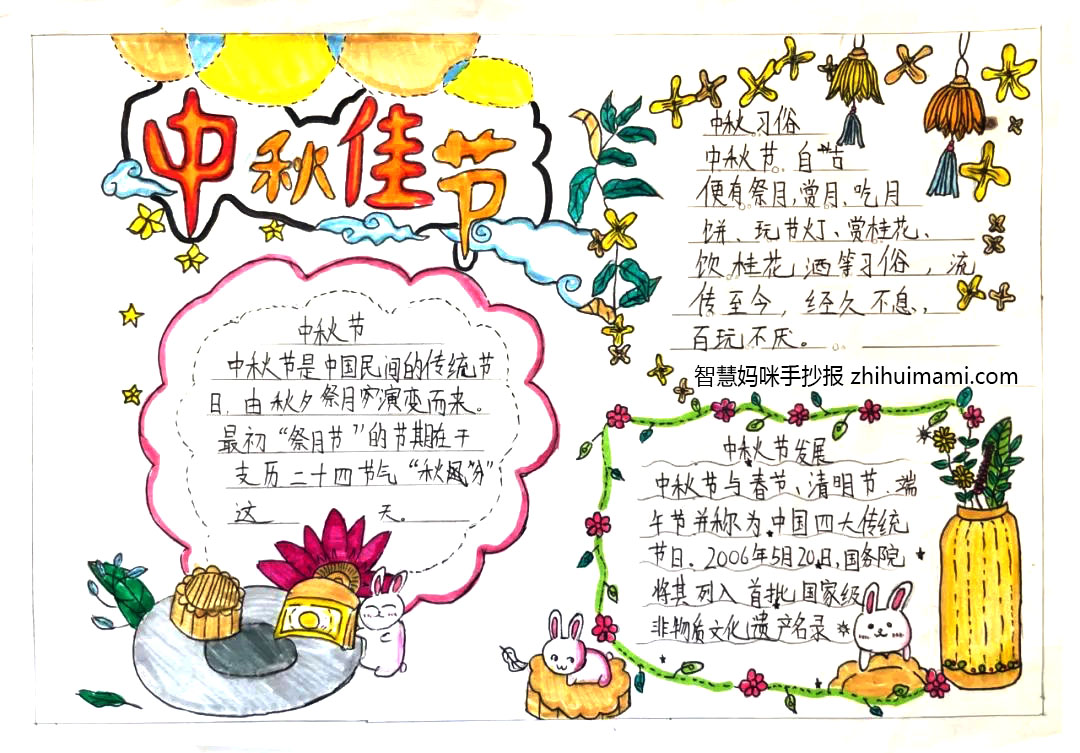 中秋佳节
中秋节
中秋节是中国民间的传统节
日，由秋夕祭月演变而来。
最初“祭月节”的节期在干
支历二十四节气“秋分”
这 天。
中秋习俗
中秋节。自古
便有祭月，赏月、吃月
饼、玩节灯、赏桂花、
饮桂花酒等习俗，流
传至今，经久不息，
百玩不厌。
智慧妈咪手抄报 zhihuimami.com
中秋节发展
中秋节与春节、清明节、端
午节并称为中国四大传统
节日。2006年5月20日，国务院
将其列入首批国家级
非物质文化遗产名录